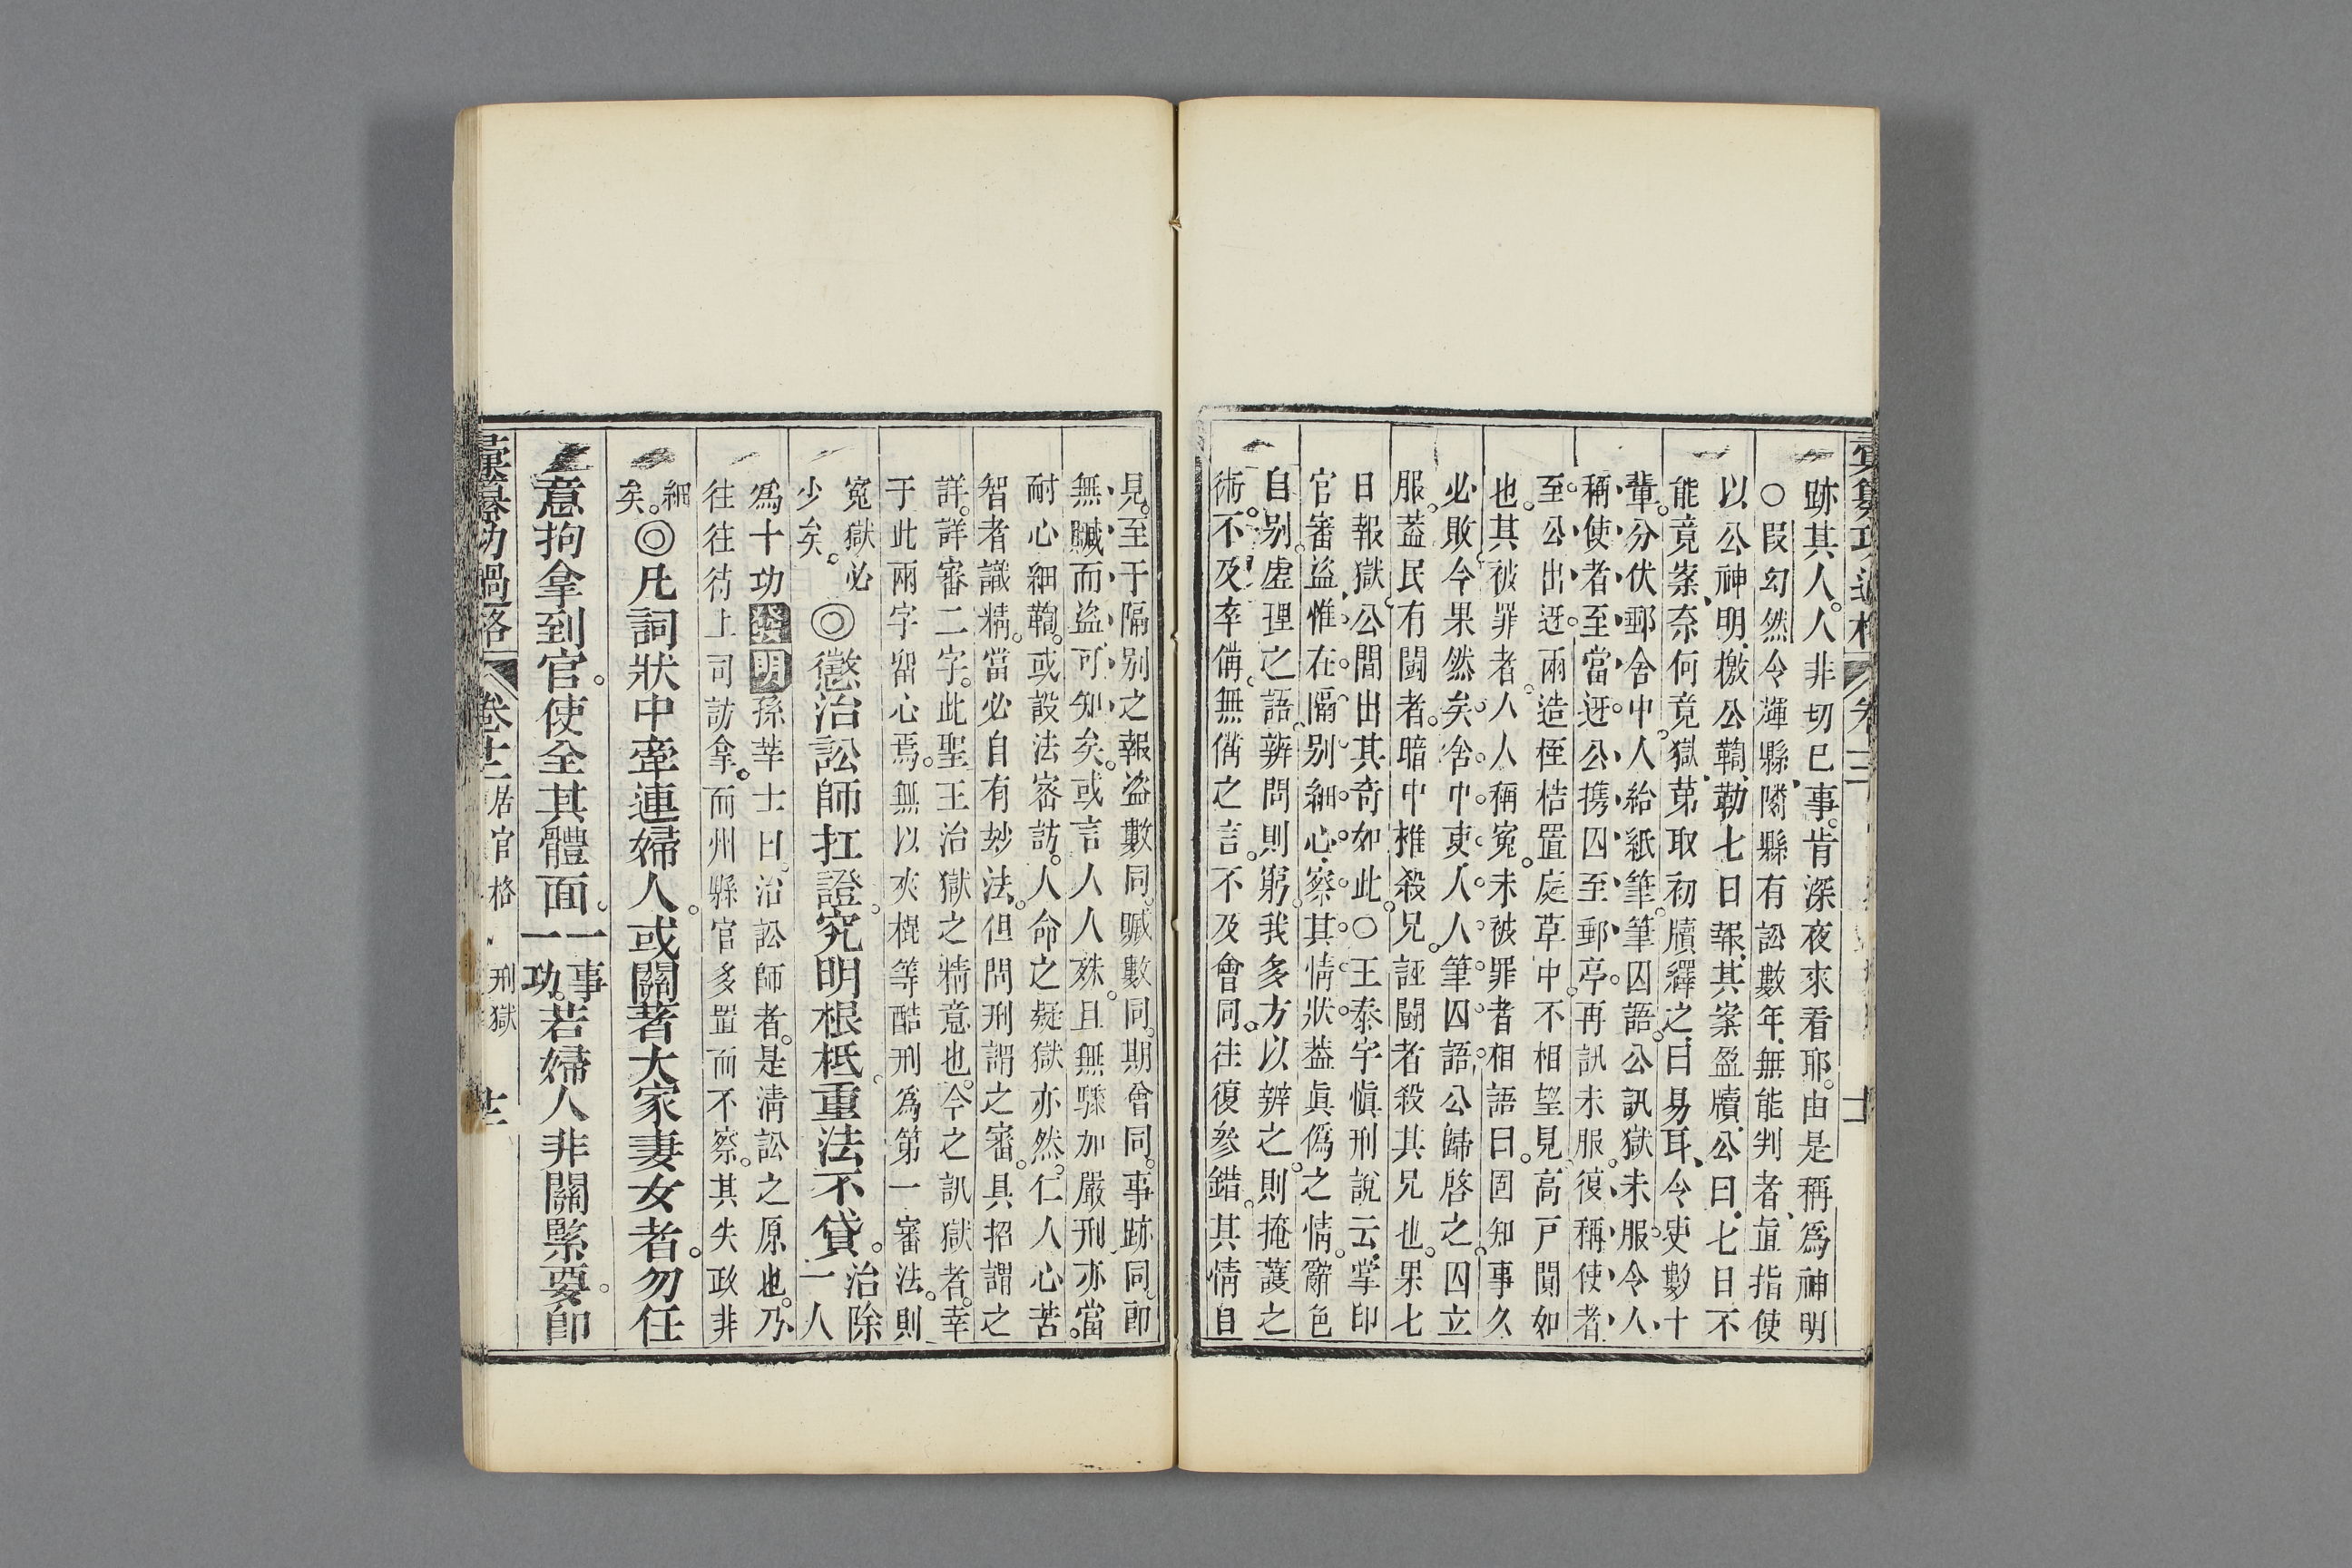 彙纂功過格
卷十二
跡其人。人非切已事。肯深夜來看耶。由是稱爲神明
○叚幻然令渾縣。隣縣有訟數年。無能判者。直指使
以公神明。檄公鞫。勒七日報。其案盈牘。公曰。七日不
能竟案。奈何竟獄。第取初牘繹之。曰易耳。令吏數十
輩。分伏郵舍中。人給紙筆。筆囚語。公訊獄未服。令人
稱使者至。當迓。公携囚至郵亭。再訊未服。復稱使者
至。公出迓。兩造桎梏置庭草中。不相望見。高戸闃如
也。其被罪者。人人稱寃。未被罪者相語曰。固知事久
必敗。今果然矣。舍中吏。人人筆囚語。公歸啓之。囚立
服。葢民有鬬者。暗中推殺兄。誣鬬者殺其兄也。果七
日報獄。公間出其奇如此。○王泰宇愼刑說云。掌印
官審盜。惟在隔别細心。察其情狀。葢眞僞之情。辭色
自别。虛理之語。辨問則窮。我多方以辨之。則掩護之
術。不及卒備。無備之言。不及會同。往復參錯。其情自
見。至于隔别之報盜數同。贓數同。期會同。事跡同。卽
無贓而盜可知矣。或言人人殊。且無驟加嚴刑。亦當
耐心細鞫。或設法密訪。人命之疑獄亦然。仁人心苦。
智者識精。當必自有妙法。但問刑謂之審。具招謂之
詳。詳審二字。此聖王治獄之精意也。今之訊獄者。幸
于此兩字留心焉。無以夾棍等酷刑爲第一審法。則
寃獄必
少矣。
◎懲治訟師扛證。究明根柢。重法不貸。
治除
一人
爲十功發明孫莘士曰。治訟師者。是淸訟之原也。乃
往往待上司訪拿。而州縣官多置而不察。其失政非
細
矣。
◎凡詞狀中牽連婦人。或關著大家妻女者。勿任
意拘拿到官。使全其體面。
一事
一功。
若婦人非關緊要。卽
彙纂功過格
卷十二
居官格
刑獄